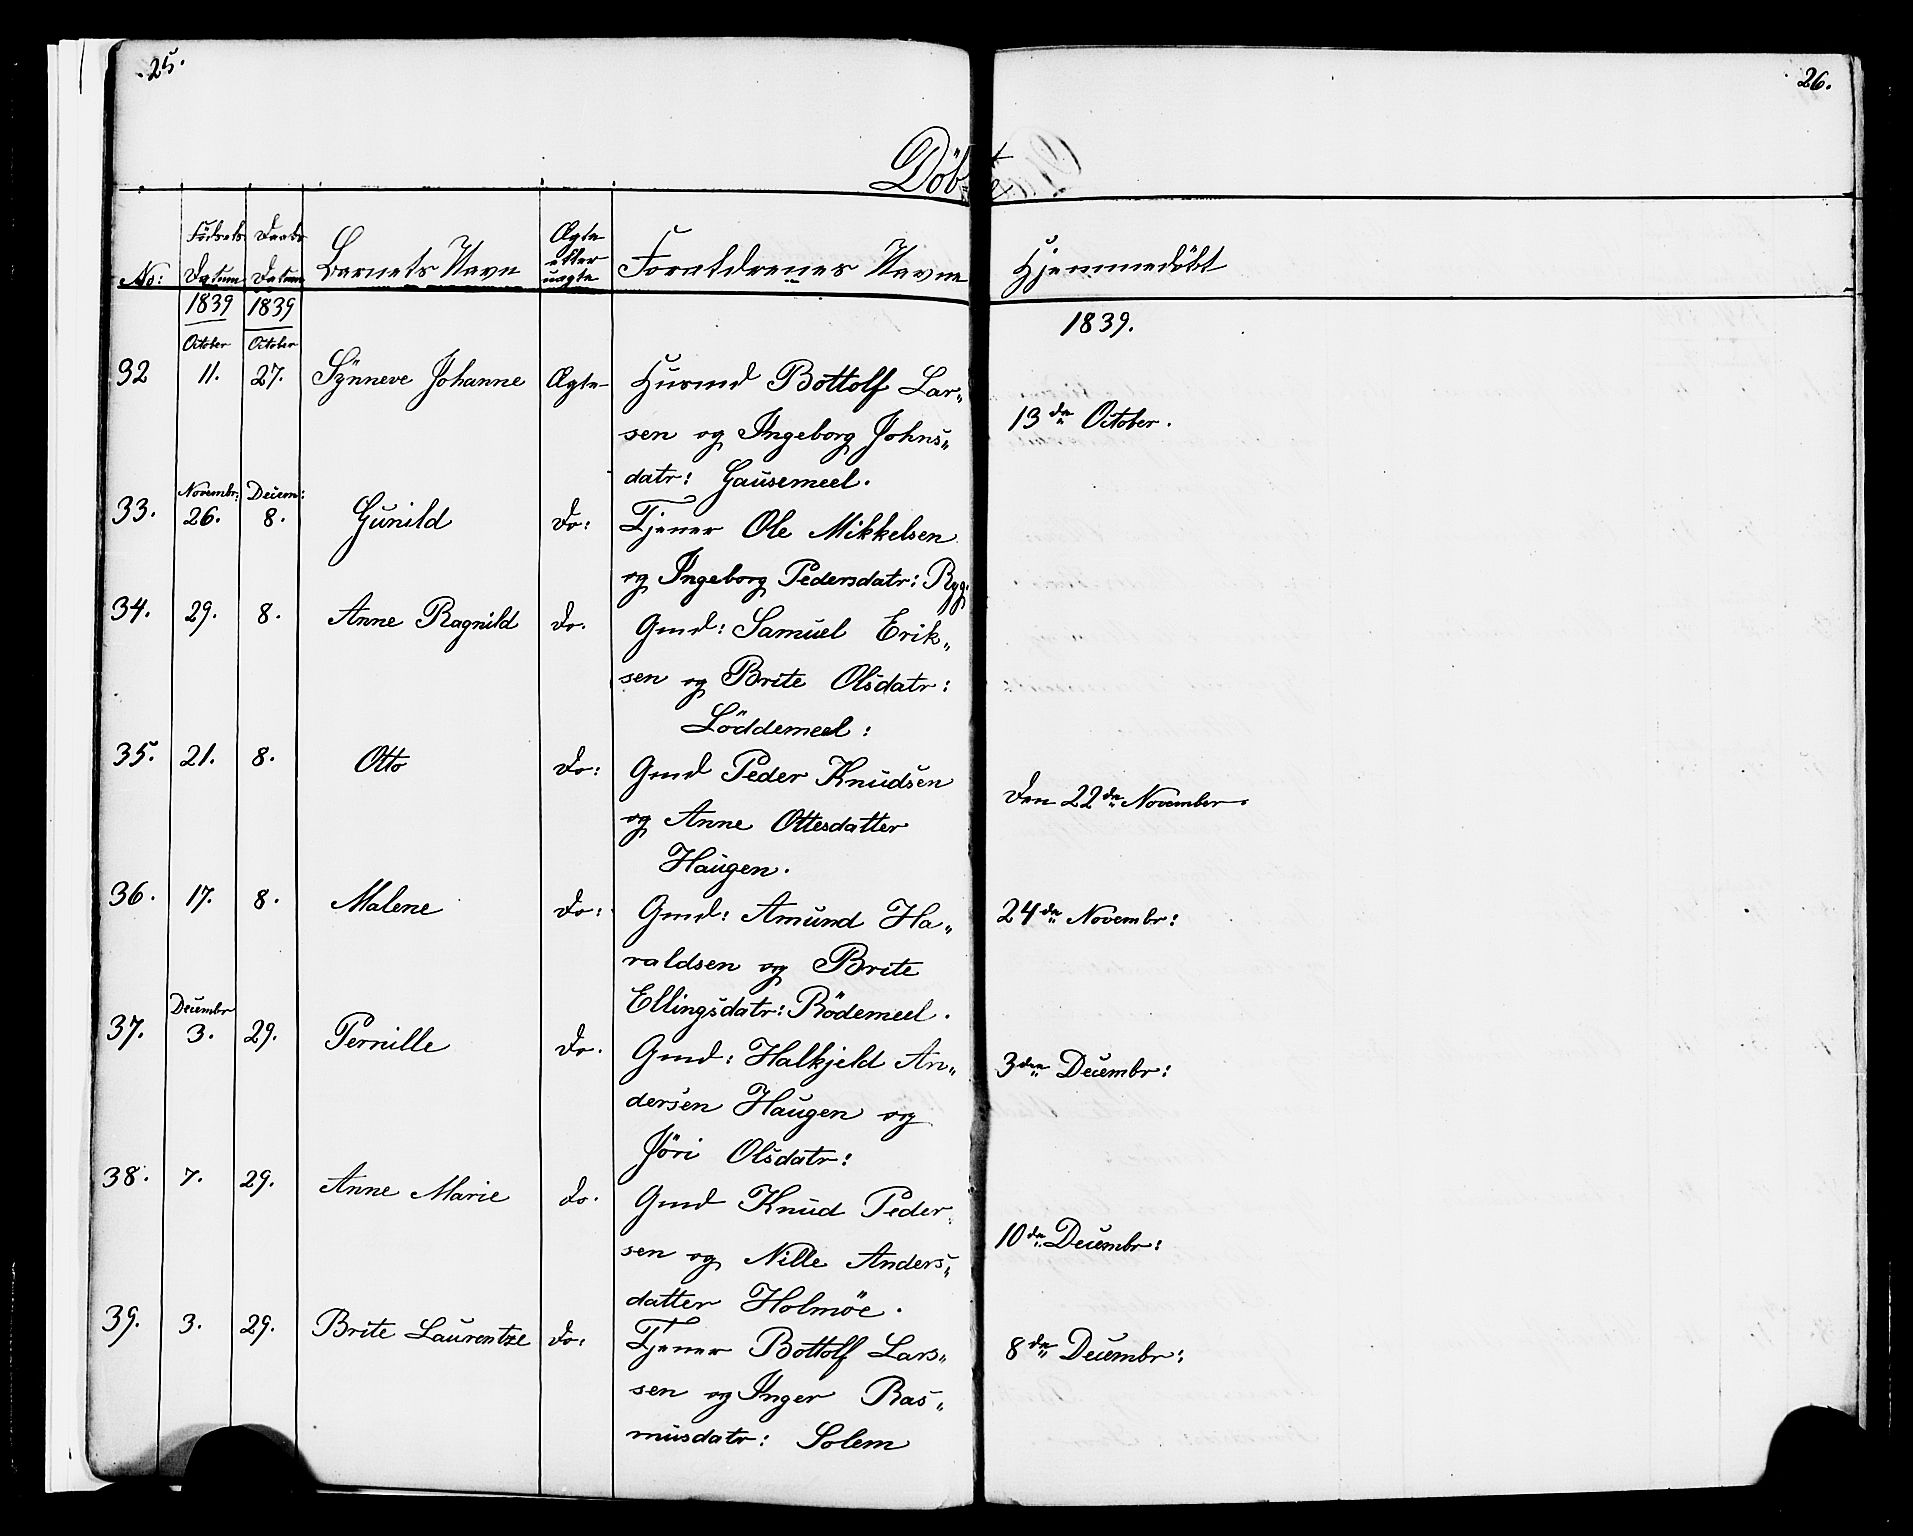 25.
26.
Döbte
No:
Födsels Datum
Daabs Datum
Barnets Navn
Ægte eller uægte
Forældrenes Navne
Hjemmedöbt
1839 1839
1839.
October October
32 11. 27. Synneve Johanne Ægte Huusmd Bottolf Lar„
sen og Ingeborg Johns„
datr: Gausemeel.
13de October.
Novembr: Decem:
33. 26. 8. Gunild Do: Tjener Ole Mikkelsen
og Ingeborg Pedersdatr: Rygg.
34. 29. 8. Anne Ragnild Do. Gmd: Samuel Erik„
sen og Brite Olsdatr:
Löddemeel:
35. 21. 8. Otto Do: Gmd Peder Knudsen
og Anne Ottesdatter
Haugen.
Den 22de November.
36. 17. 8. Malene Do: Gmd: Amund Ha„
raldsen og Brite
Ellingsdatr: Rödemeel.
24de Novembr:
Decembr
37. 3. 29. Pernille Do. Gmd: Halkjeld An„
dersen Haugen og
Jöri Olsdatr:
3den Decembr:
38. 7. 29. Anne Marie Do. Gmd Knud Peder„
sen og Nille Anders„
datter Holmöe.
10de Decembr:
39. 3. 29. Brite Laurentze Do: Tjener Bottolf Lars„
sen og Inger Ras„
musdatr: Solem
8de Decembr: